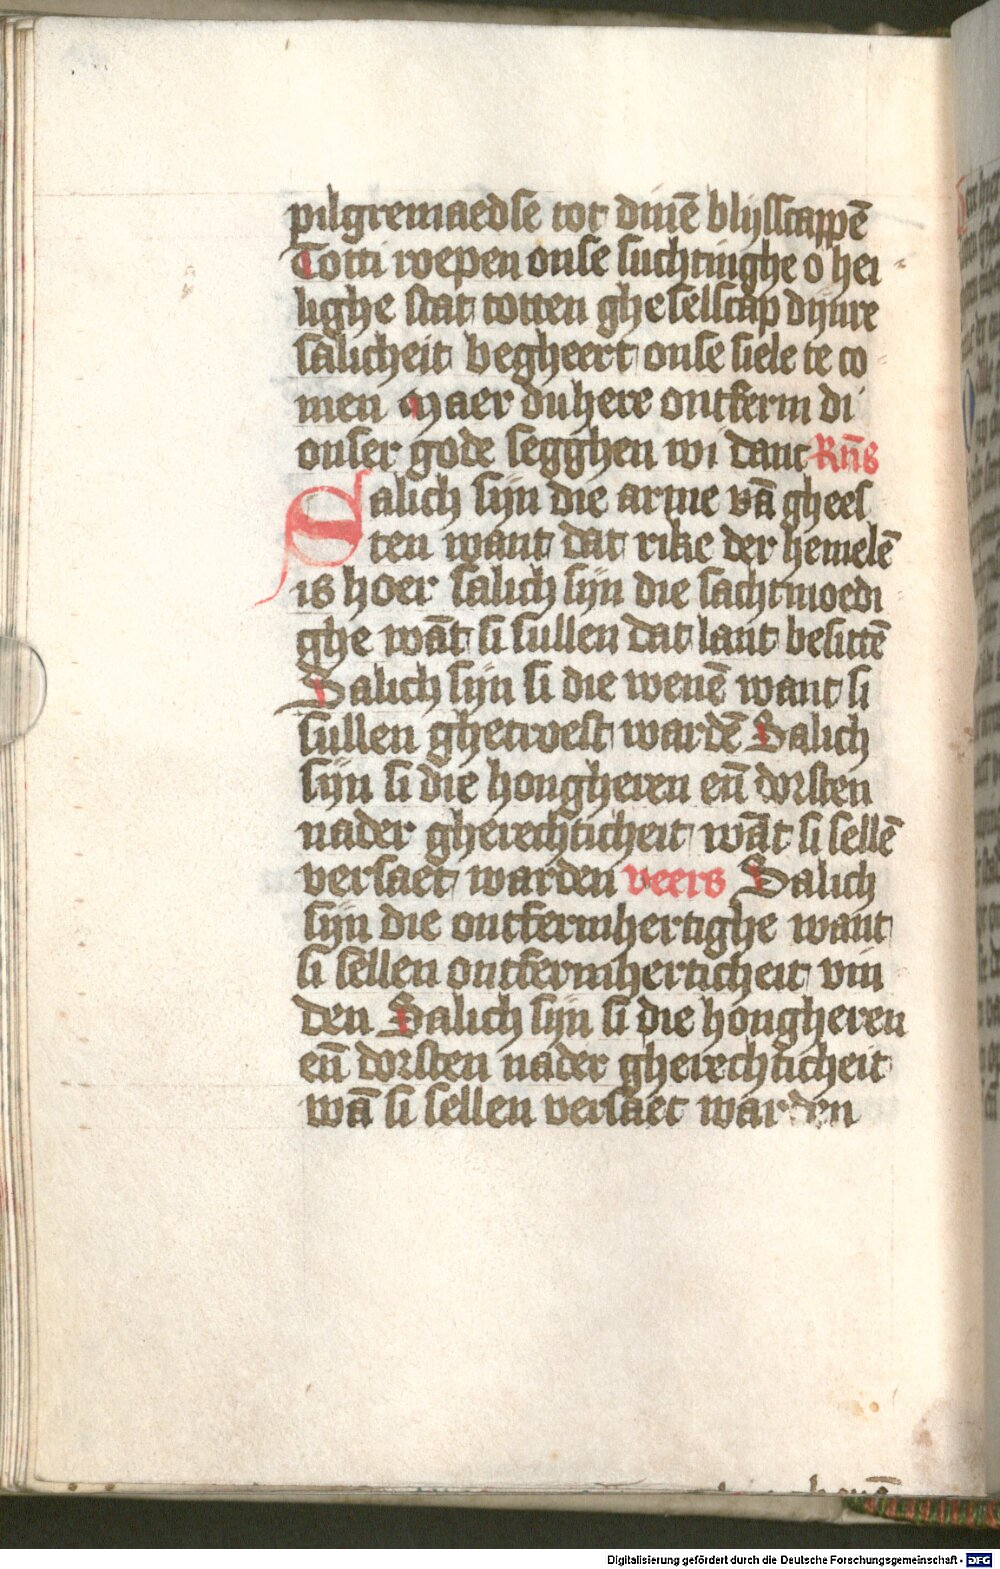 pilgremaedse tot dinē blijsscappē
Totti roepen onse suchtinghe o hei-
lighe stat totten gheselscap dijnre
salicheit begheert onse siele te co
men Maer du here ontferm di
onser gode segghen wi danc Rñs
Salich sijn die arme vā ghees
ten want dat rike der hemelē
is hoer salich sijn die sachtmoedi
ghe wāt si sullen dat lant besittē
Salich sijn si die wenē want si
sullen ghetroest wardē Salich
sijn si die hongheren eñ dorsten
nader gherechticheit wāt si sellē
versaet warden veers Salich
sijn die ontfermhertighe want
si sellen ontfermherticheit vin
den Salich sijn si die hongheren
eñ dorsten nader gherechticheit
wā si sellen versaet warden
Digitalisierung gefördert durch die Deutsche Forschungsgemeinschaft - DFG